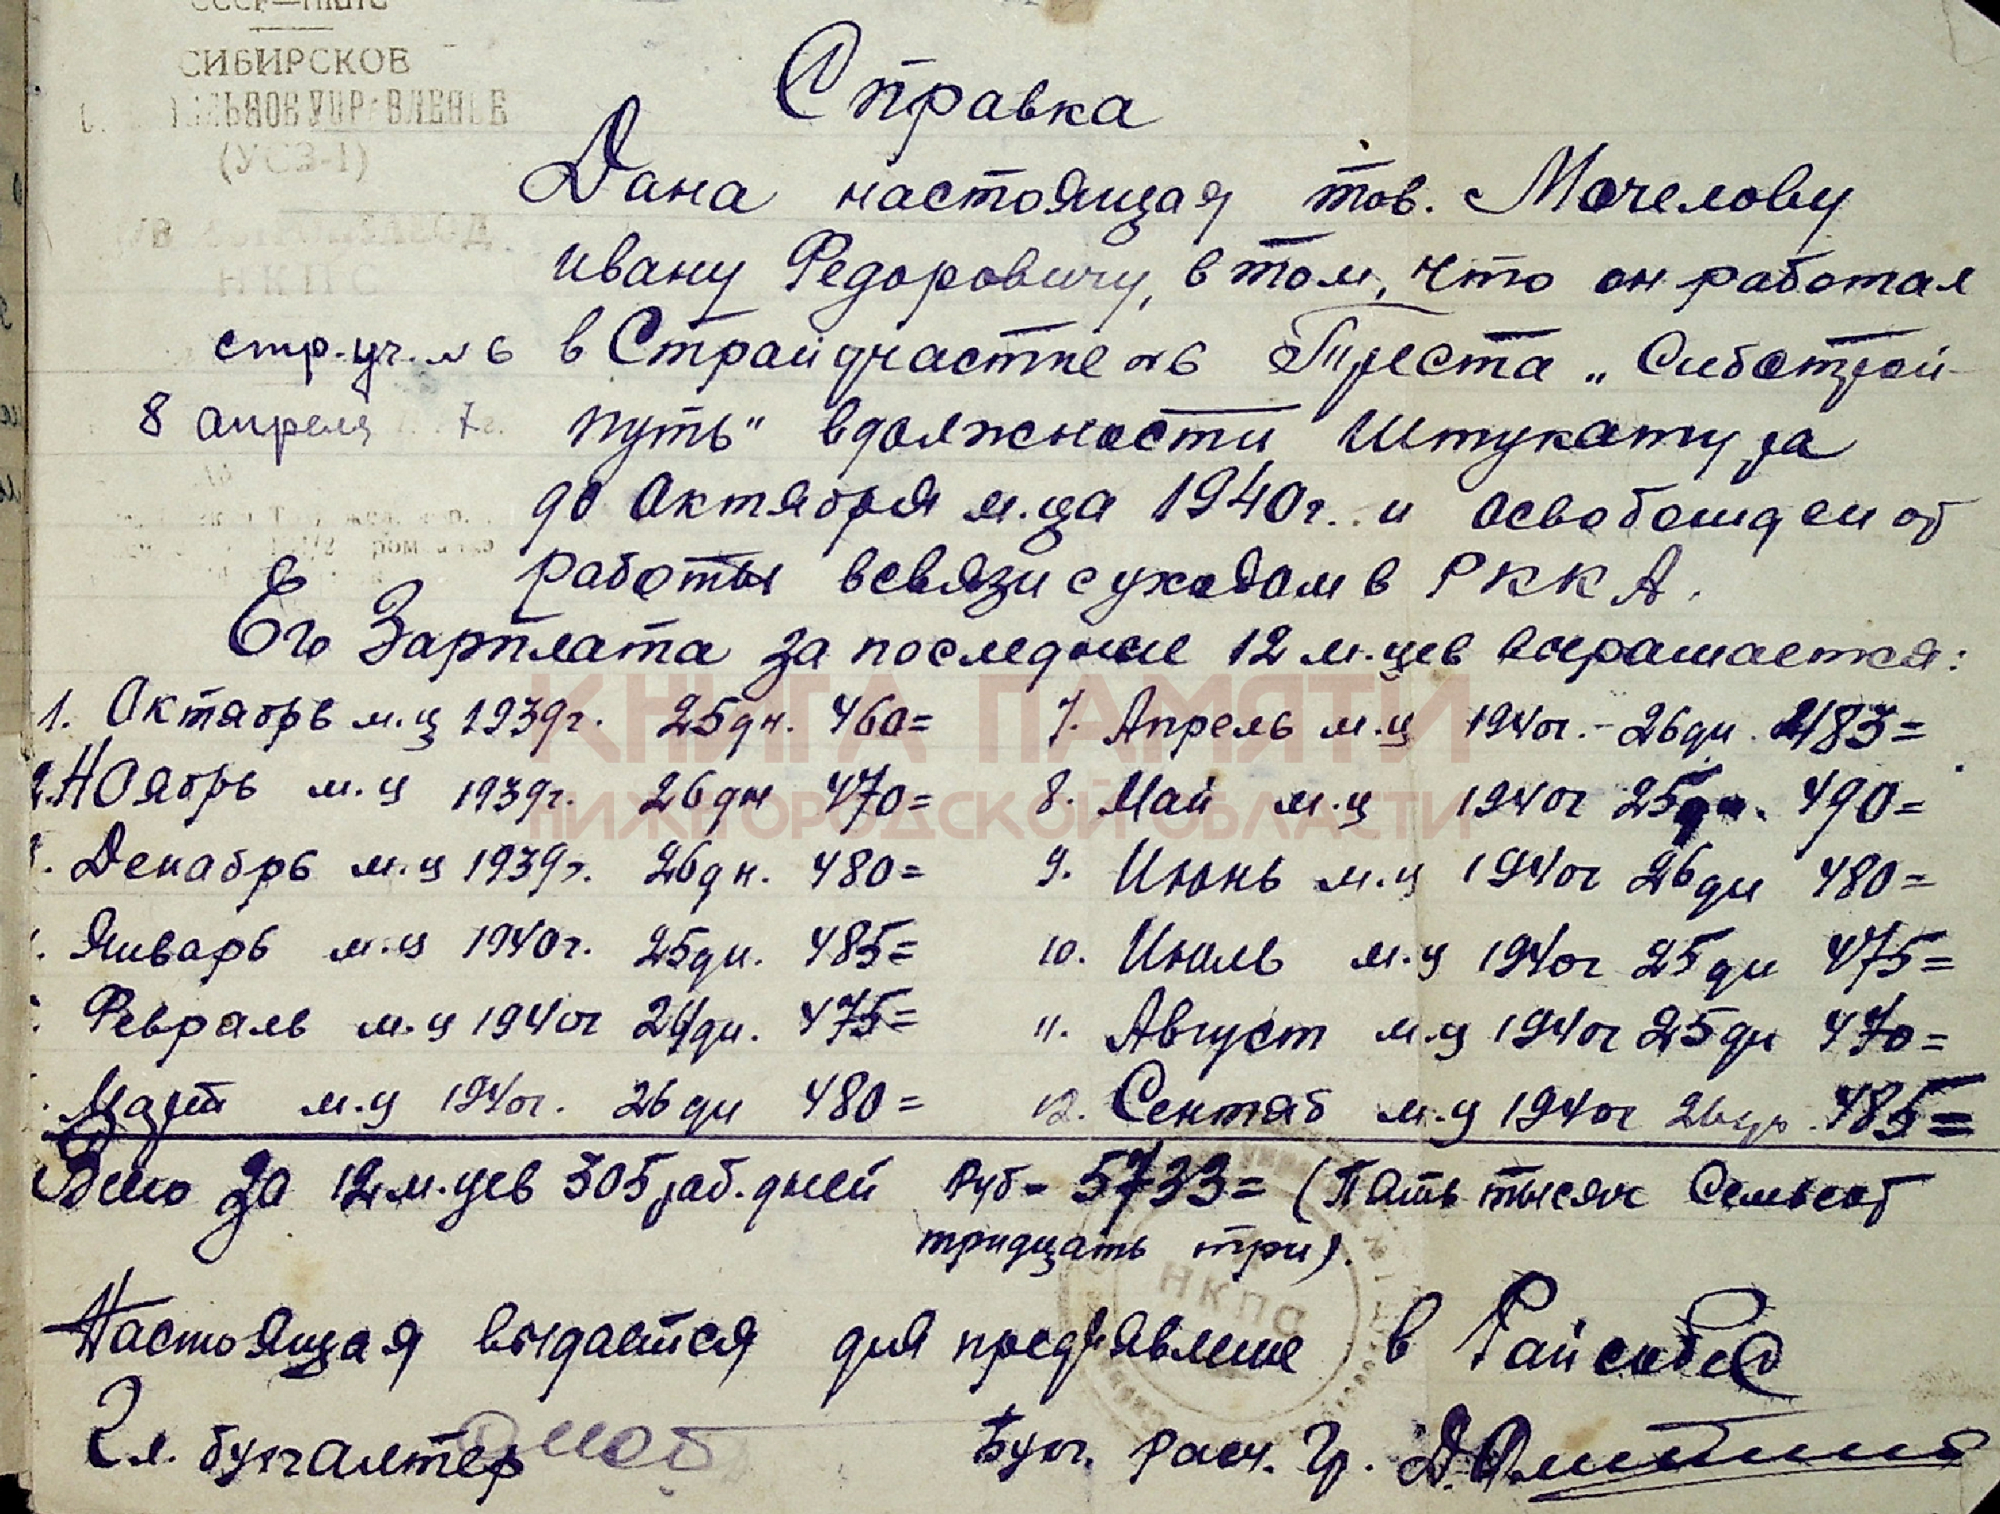 СИБИРСКОЕ
УПРАВЛЕНИЕ
(УСЗ-1)
НКПС
стр.уч. №6
8 апреля 7 г.
Справка
Дана настоящая тов. Мочелову
Ивану Федоровичу, в том, что он работал
в Стройучастке №6 Треста „Сибстрой-
путь" в должности Штукатура
до Октября м.ца 1940г. и освобожден от
работы всвязи с уходом в РККА.
Его Зарплата за последние 12 м.цев выражается:
1. Октябрь м.ц 1939г. 25дн. 460=
2. Ноябрь м.ц 1939г. 26дн 470=
3. Декабрь м.ц 1939г. 26дн. 480=
Январь м.ц 1940г. 25дн. 485=
Февраль м.ц 1940г 24дн. 475=
Март м.ц 1940г. 26дн 480=
7. Апрель м.ц 1940г. - 26дн. 483=
8. Май м.ц 1940г 25дн. 490=
9. Июнь м.ц 1940г 26дн 480=
10. Июль м.ц 1940г 25дн 475=
11. Август м.ц 1940г 25дн 470=
12. Сентяб м.ц 1940г 26дн. 485=
Всего за 12 м.цев 305 раб. дней Руб - 5733= (Пять тысяч Семьсот
тридцать три).
Настоящая выдается для предъявление в Райсобес
Гл. бухгалтер
Бухг. Расч. Гр.
НКПС
КНИГА ПАМЯТИ
НИЖЕГОРОДСКОЙ ОБЛАСТИ